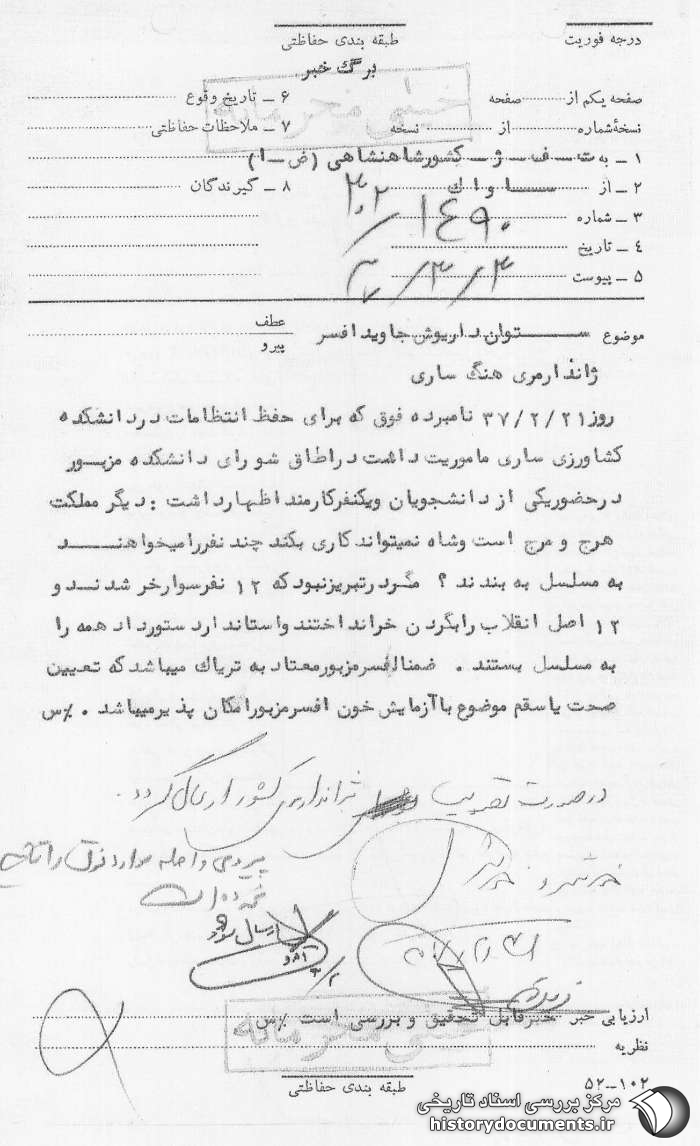 طبقه بندی حفاظتی
درجه فوریت
برگ خبر
خیلی محرمانه
صفحه یکم از صفحه
۶ ـ تاریخ وقوع
نسخهٔ شماره از نسخه
۷ ـ ملاحظات حفاظتی
۱ ـ به ت ـ ف ـ ژ ـ کشورشاهنشاهی (ض ـ ا)
۲ ـ از ســاواك
۸ ـ گیرندگان
۳ ـ شماره ۳۰۲/۱۴۹۰
۴ ـ تاریخ
۵ ـ پیوست
۳۷/۳/۳
موضوع ســتوان داریوش جاوید افسر
عطف
پیرو
ژاندارمری هنگ ساری
روز ۳۷/۲/۲۱ نامبرده فوق که برای حفظ انتظامات در دانشکده
کشاورزی ساری ماموریت داشت در اطاق شورای دانشکده مزبــور
درحضوریکی از دانشجویان ویکنفرکارمند اظهارداشت : دیگر مملکت
هرج و مرج است وشاه نمیتواند کاری بکند چند نفررا میخواهنــد
به مسلسل به بندند ؟ مگر در تبریزنبود که ۱۲ نفرسوارخر شدند و
۱۲ اصل انقلاب را بگردن خراند اختند واستاندار دستورداد همه را
به مسلسل بستند . ضمنا افسرمزبورمعتاد به تریاك میباشد که تعیین
صحت یا سقم موضوع با آزمایش خون افسرمزبورامکان پذیر میباشد . ٪س
در صورت تصویب ژاندارمری کشور ارسال گردد.
موارد فوق را تائید
ارسال شود
۳/۲
ارزیابی خبر خبرقابل تحقیق و بررسی است ٪س
خیلی محرمانه
نظریه
طبقه بندی حفاظتی
۵۲ــ۱۰۲
مرکز بررسی اسناد تاریخی
historydocuments.ir